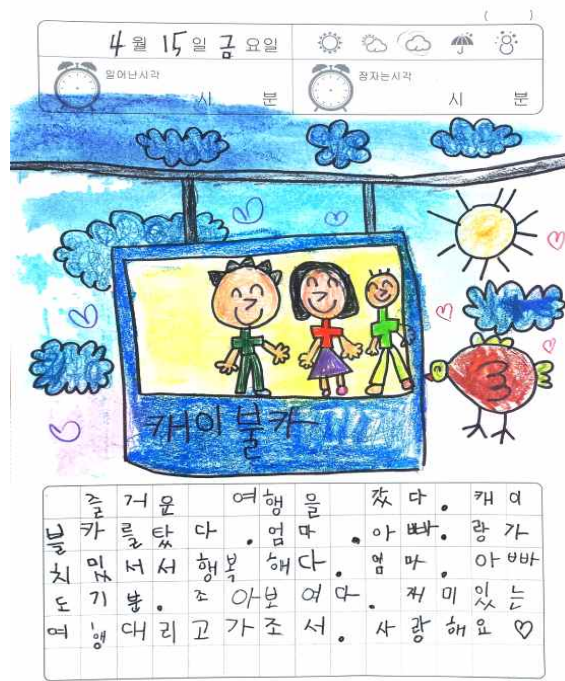 ( )
4월 15일 금요일
일어난시각
시 분
잠자는시각
시 분
캐이불카
즐거운 여행을 갔다. 캐이
블카를탔다. 엄마. 아빠. 랑가
치 있서서 행복해다. 엄마. 아빠
도기분. 조아보여다. 재미있는
여행대리고가조서. 사랑해요♡